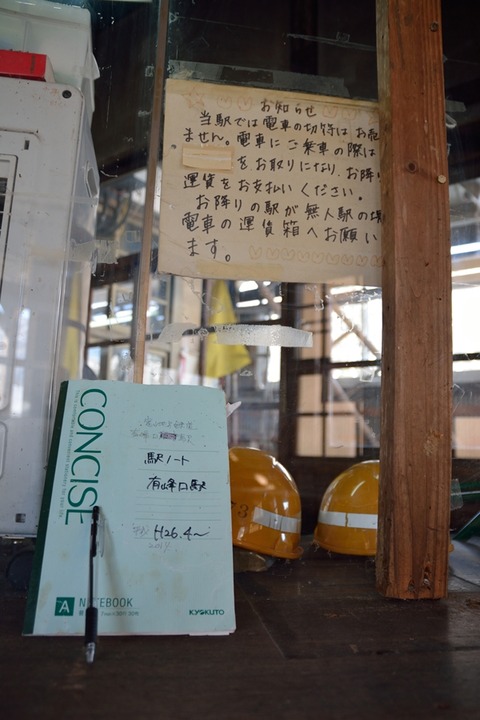 お知らせ
当駅では電車の切符はお売
ません。電車にご乗車の際は
をお取りになり、お降
運賃をお支払いください。
お降りの駅が無人駅の場
電車の運賃箱へお願い
ます。
CONCISE
駅ノート
有峰口駅
H26.4〜
A NOTEBOOK
KYOKUTO
73